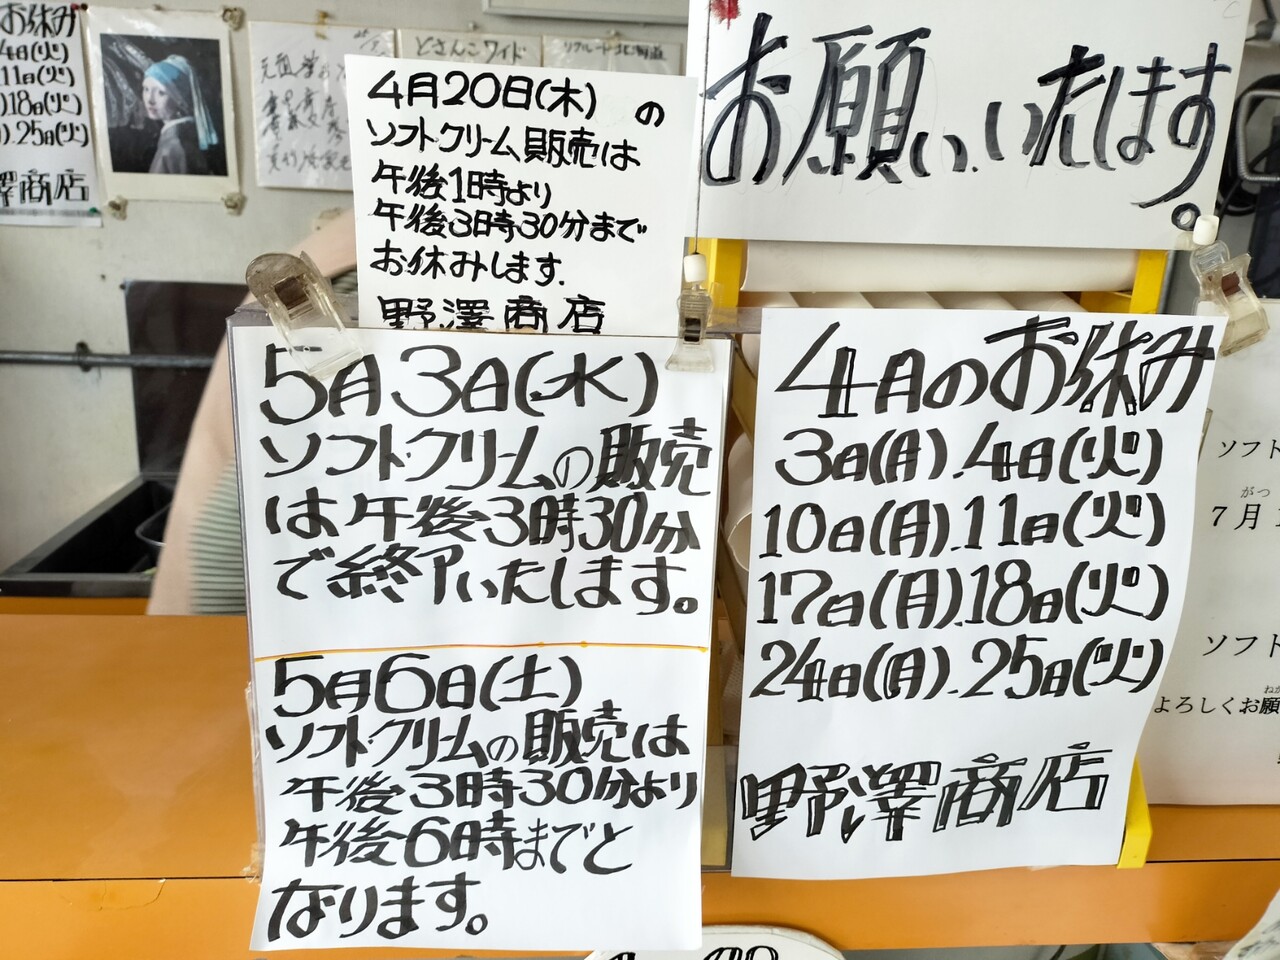 お休み
4日(火)
11日(火)
18日(火)
25日(火)
澤商店
どさんこワイド
リクルート北海道
4月20日(木) の
ソフトクリーム販売は
午後1時より
午後3時30分まで
お休みします.
野澤商店
お願い、いたします。
5月3日(水)
ソフトクリームの販売
は午後3時30分
で終了いたします。
5月6日(土)
ソフトクリームの販売は
午後3時30分より
午後6時までと
なります。
4月のお休み
3日(月).4日(火)
10日(月).11日(火)
17日(月).18日(火)
24日(月).25日(火)
野澤商店
ソフト
がつ
7月
ソフト
よろしくお願